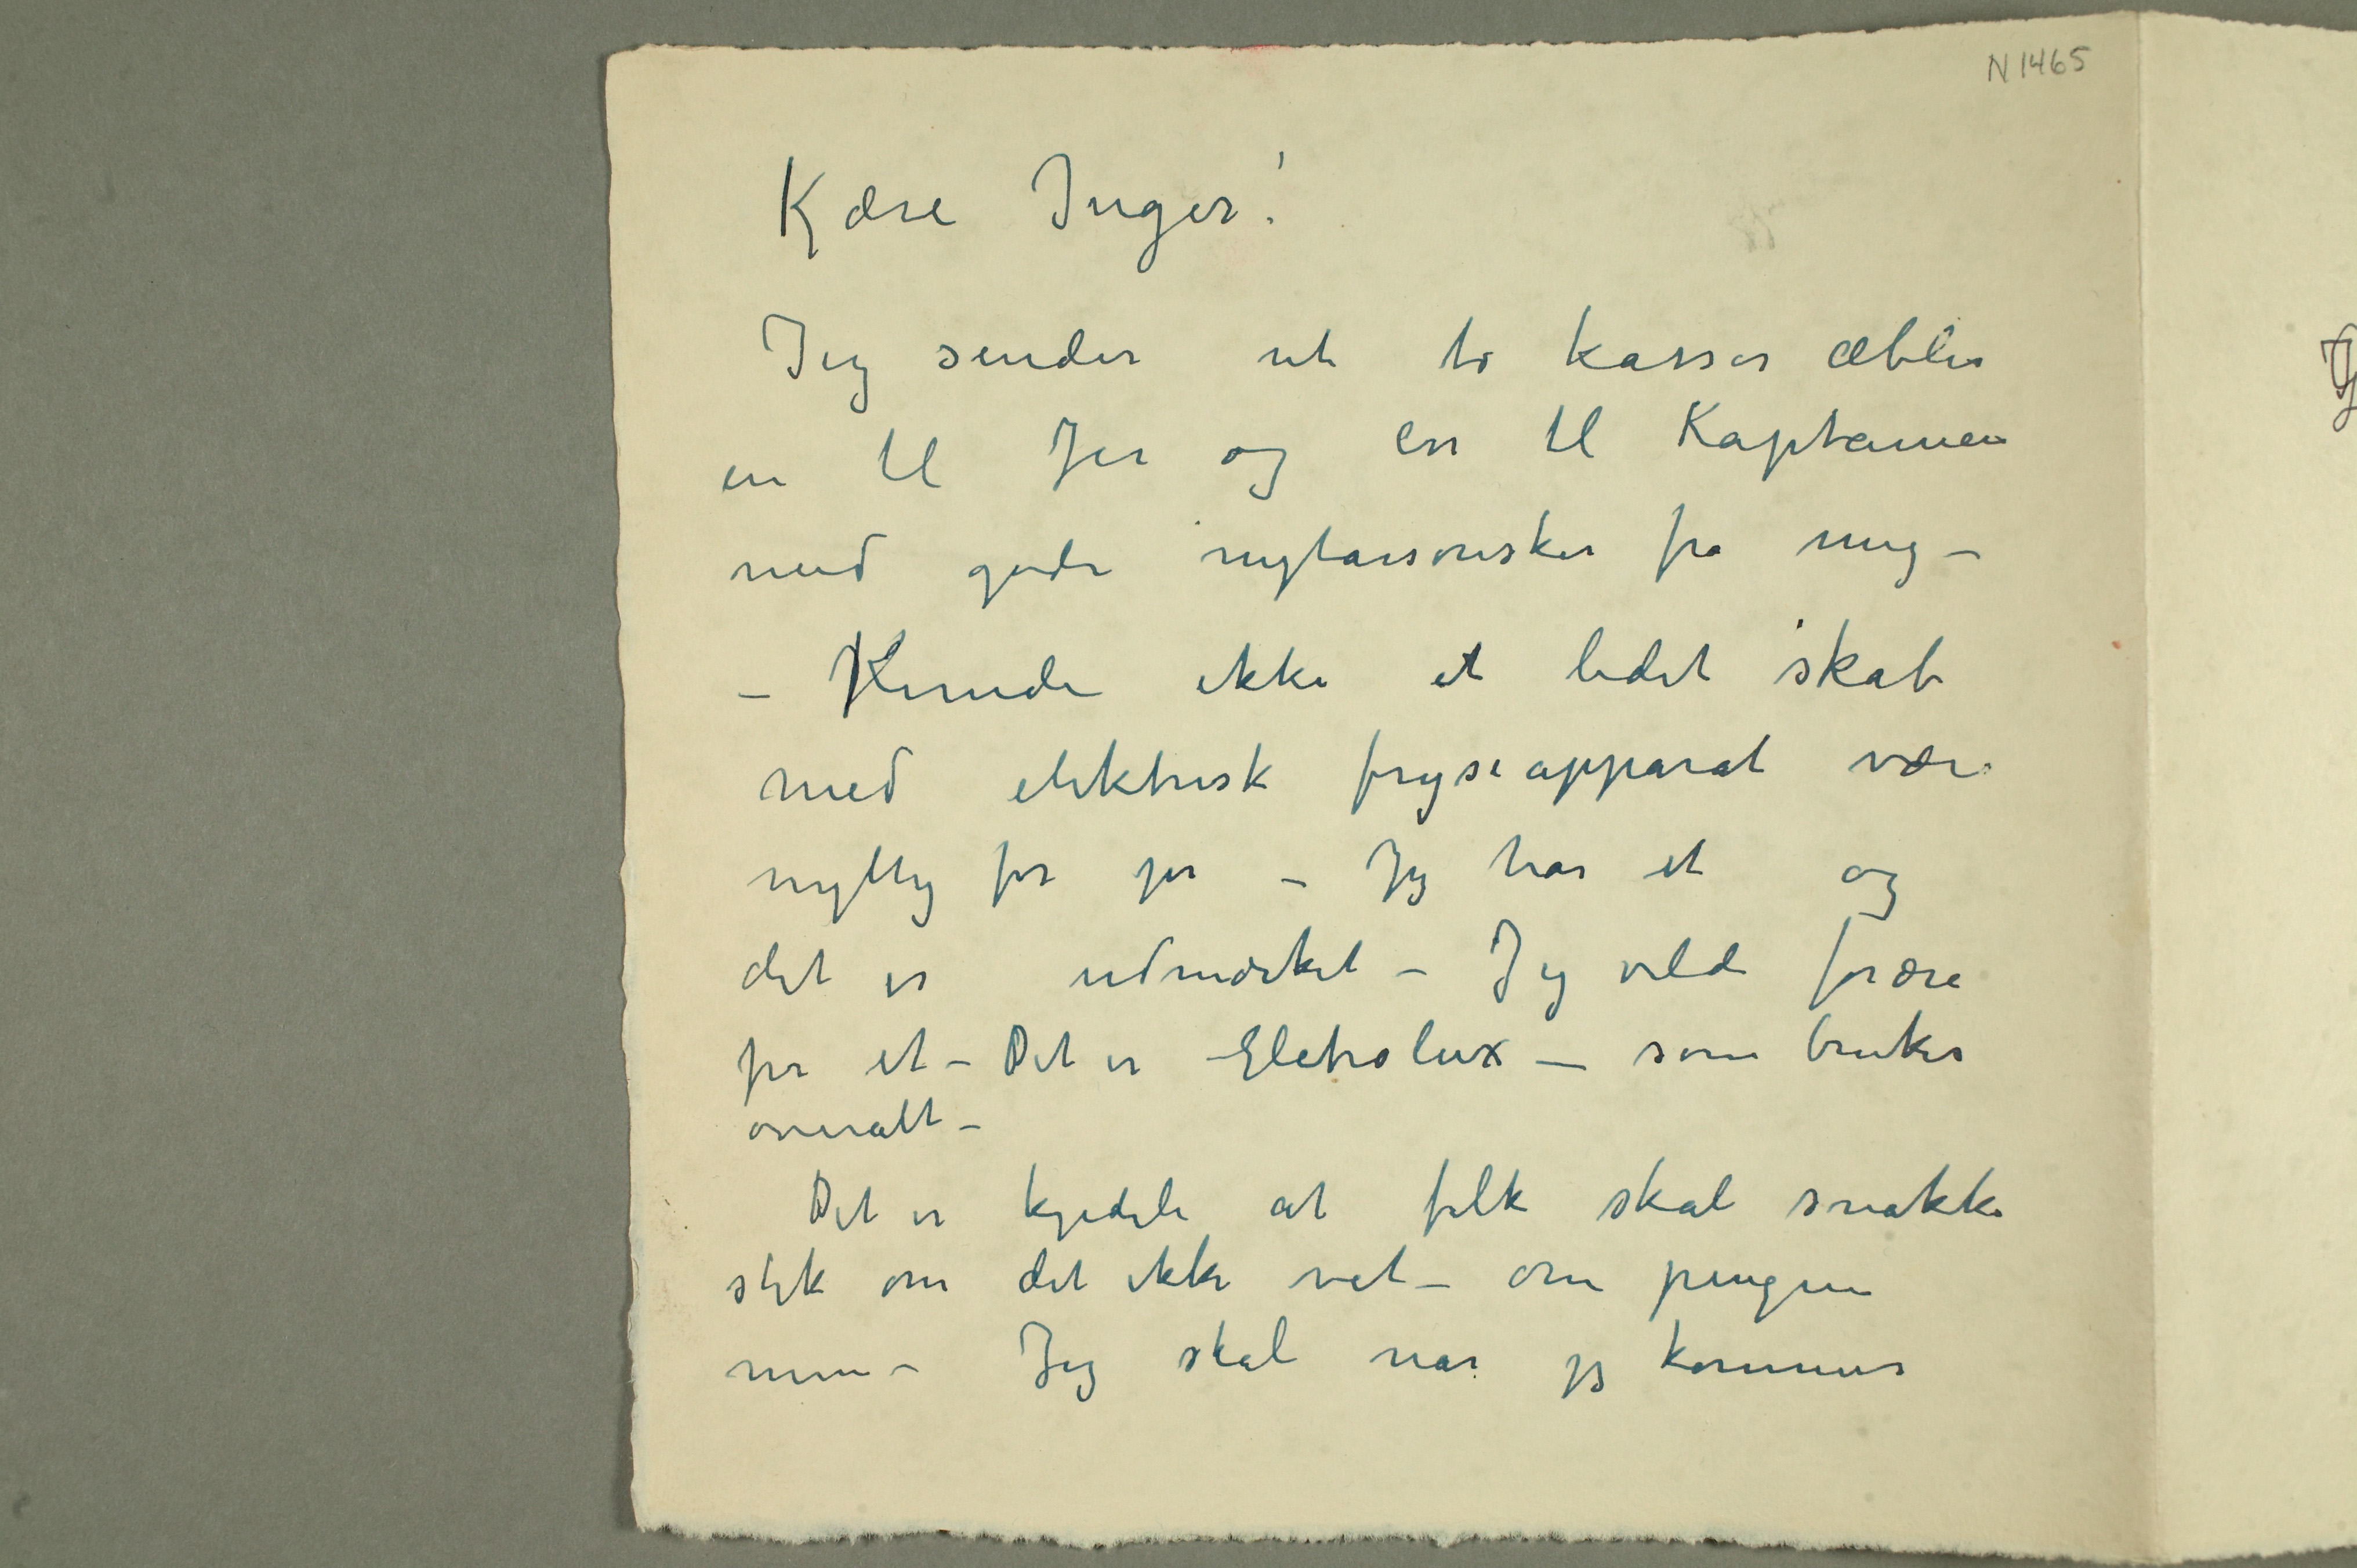 N 1465
Kjære Inger!
Jeg sender ut to kasser æbler
en til Jer og en til Kapteinen
med gode nytårsønsker fra mig –
– Kunde ikke et lidet skab
med elektrisk fryseapparat være
nyttig for jer – Jeg har et og
det er udmærket – Jeg vilde forære
jer et – Det er Eletrolux – som brukes
overalt –
Det er kjedeli at folk skal snakke
slik om det ikke vet – om pengene
mine – Jeg skal når jeg kommer